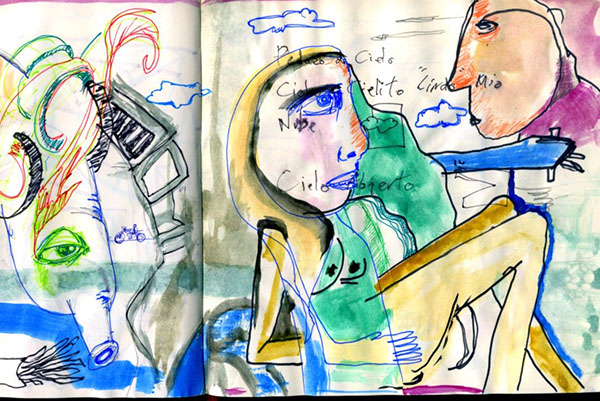 Pedazo de Cielo
Cielo Cielito "Lindo" Mio
Nube
Cielo Abierto